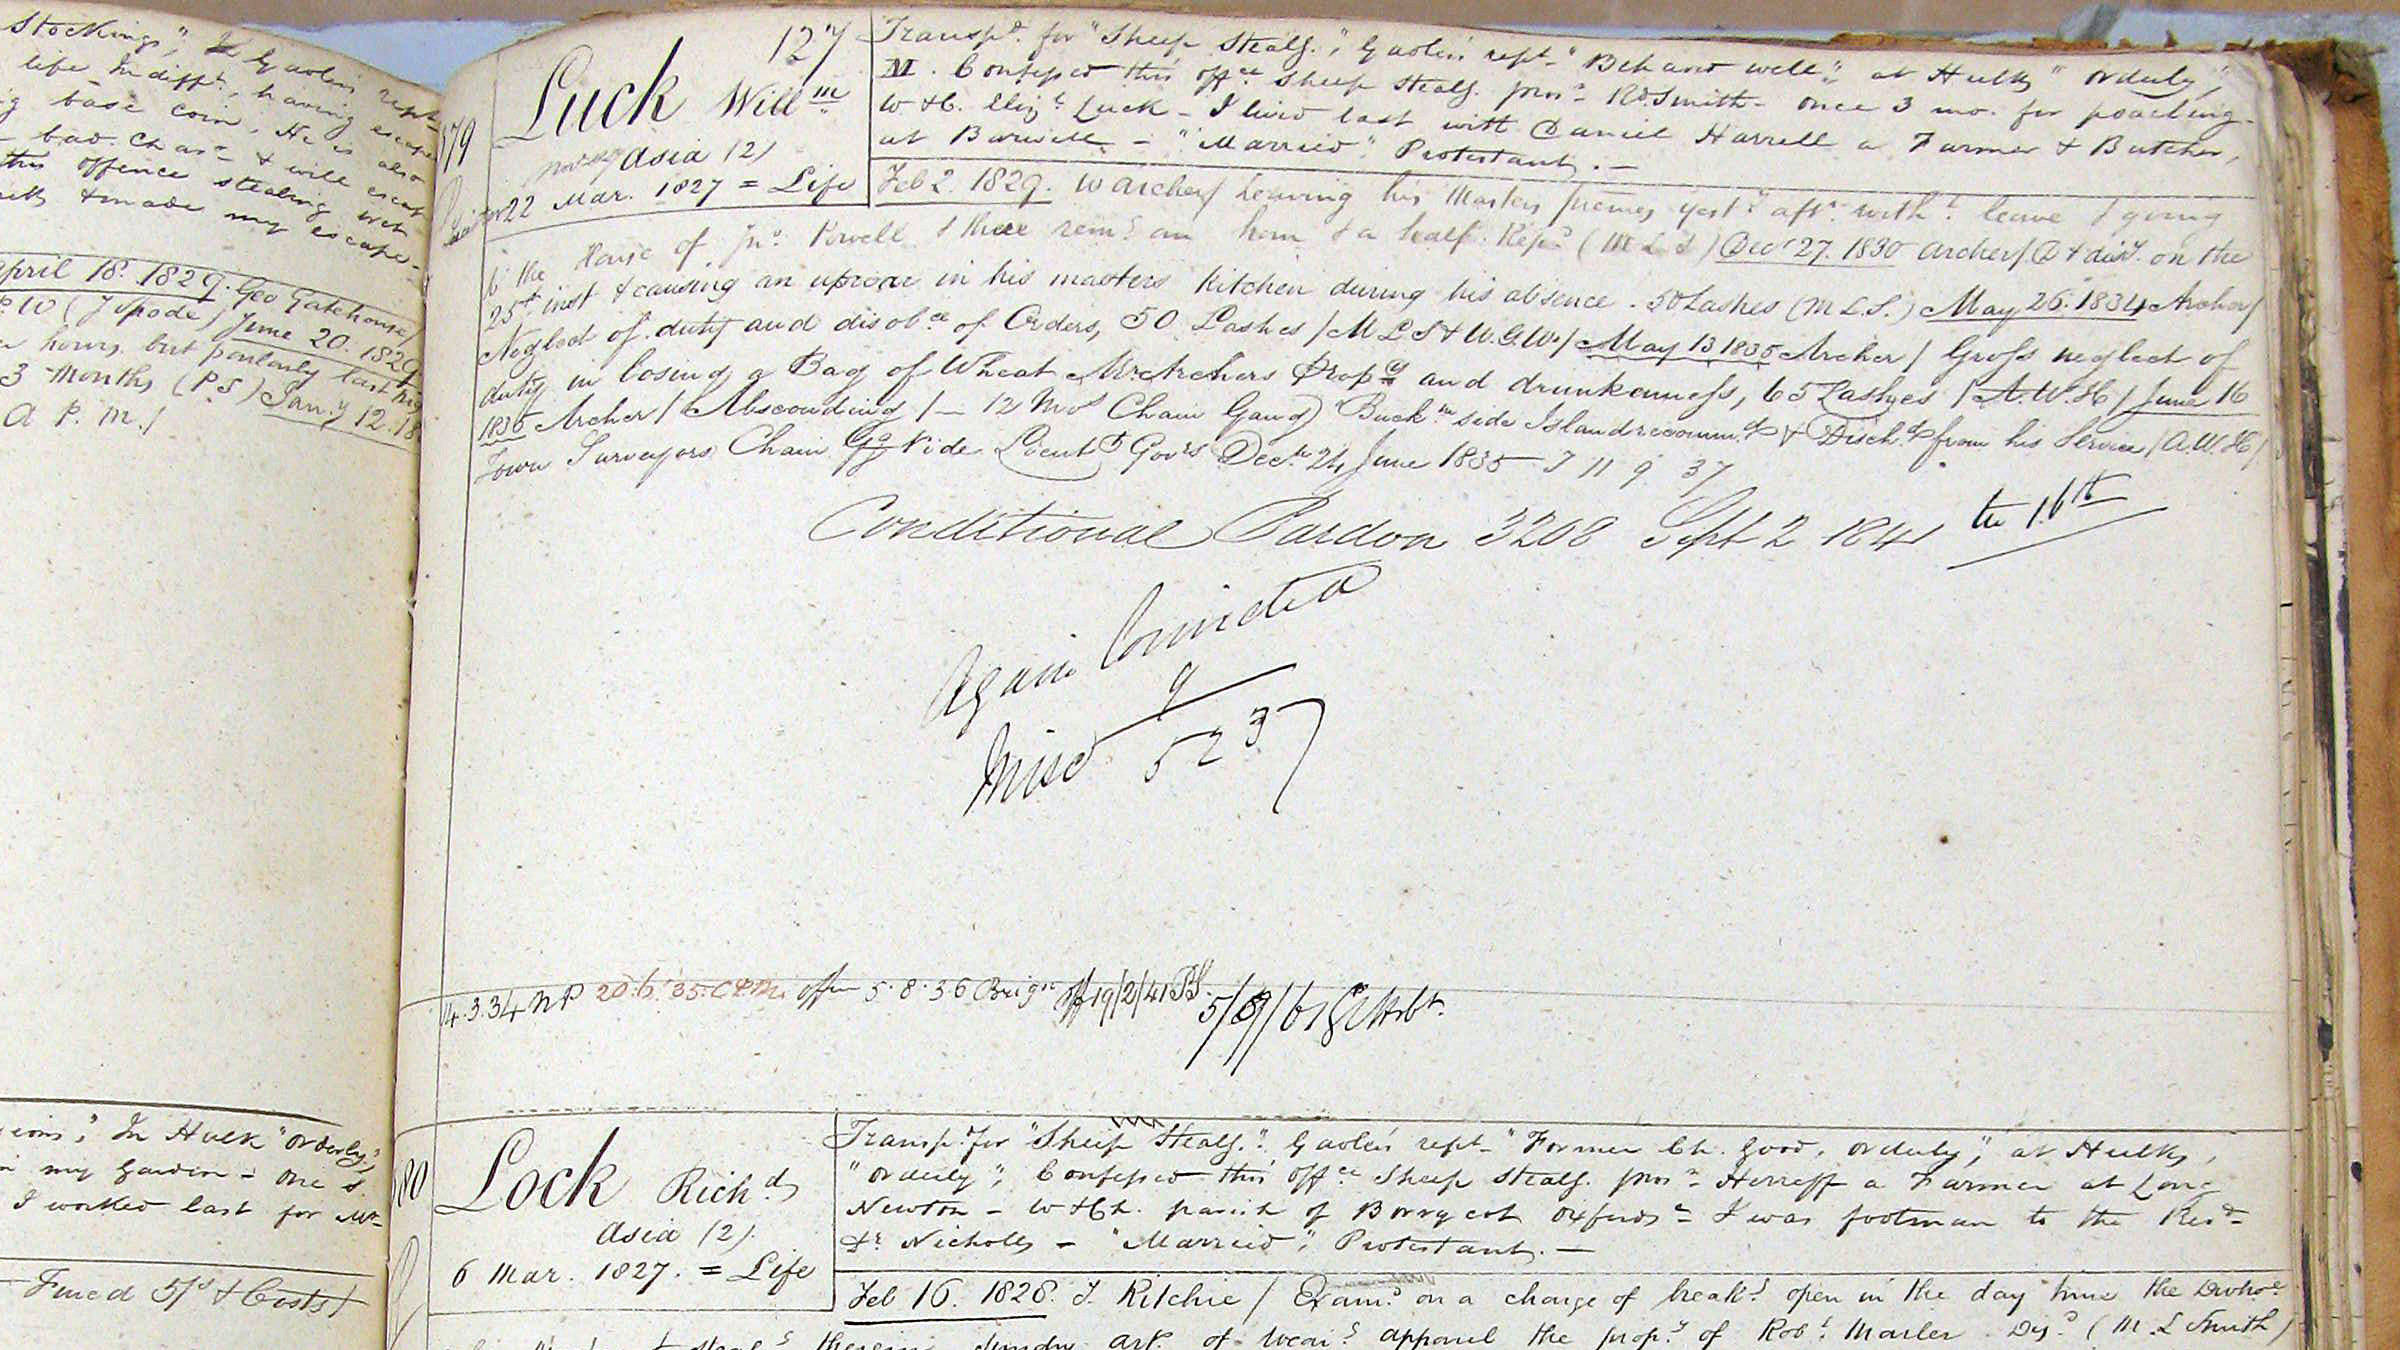 Stockings", Gaolers rept
life Indifft, having escaped
base coin, He is also
bad Charr & will escape
this offence stealing
& made my escape -
April 18. 1829. Geo Gatehouse/
June 20. 1829
hours but
3 Months (P.S) Jany 12. 18
A P. M./
ions", In Hulk "orderly",
my Garden - one S.
I worked last for Mr
Fined 5/s & Costs/
127
579
Luck Willm
Asia (2)
22 Mar. 1827 = Life
Transpd. for "Sheep Stealg." Gaolers rept - "Behaved well", at Hulks "orderly",
M. Confessed this offce Sheep Stealg. prosr Rd. Smith - once 3 mo. for poaching -
W & C. Elizth Luck - I lived last with Daniel Harrell a Farmer & Butcher,
at Barwell - "Married" Protestant. -
Feb 2. 1829. W Archer/ Leaving his Masters premes yesty aftn. witht. leave & going
to the House of Jno. Powell & there remg an hour & a half. Repd (M L S) Decr 27. 1830 Archer/ D & disy. on the
25th inst & causing an uproar in his masters kitchen during his absence. 50 Lashes (M L.S.) May 26. 1834 Archer/
Neglect of duty and disobce of Orders, 50 Lashes / M L S & W.G.W./ May 13 1835 Archer / Gross neglect of
duty in losing a Bag of Wheat Mr. Archers Propy and drunkenness, 65 Lashes / A.W.H / June 16
1835 Archer / Absconding / - 12 Mos Chain Gang) Buckm side Island recommd & Dischd from his Service / A.W.H /
Town Surveyors Chain Gg Vide Lieut Govrs Decn 24 June 1835 - T 11 9 37
Conditional Pardon 3208 Sept 2 1841 to 16th
Again Convicted
9
Misc 5237
4.3.34 NP 20.6.35. C P 5.8.36 Brign 19/2/41 P.B.
580
Lock Richd
Asia (2).
6 Mar. 1827. = Life
Transp. for "Sheep Stealg." Gaolers rept - "Former Ch. good, orderly", at Hulks,
"orderly", Confessed this offce Sheep Stealg. prosr - Herreff a Farmer at Long
Newton - W & Ch. parish of Oxfords - I was footman to the Revd
Dr. Nicholls - "Married", Protestant. -
Feb 16. 1828. J. Ritchie / Examd. on a charge of breakg. open in the day time the Dwhoe
therein sundry art. of wearg apparel the propy of Robt. Marler Dis.d (M. L Smith)